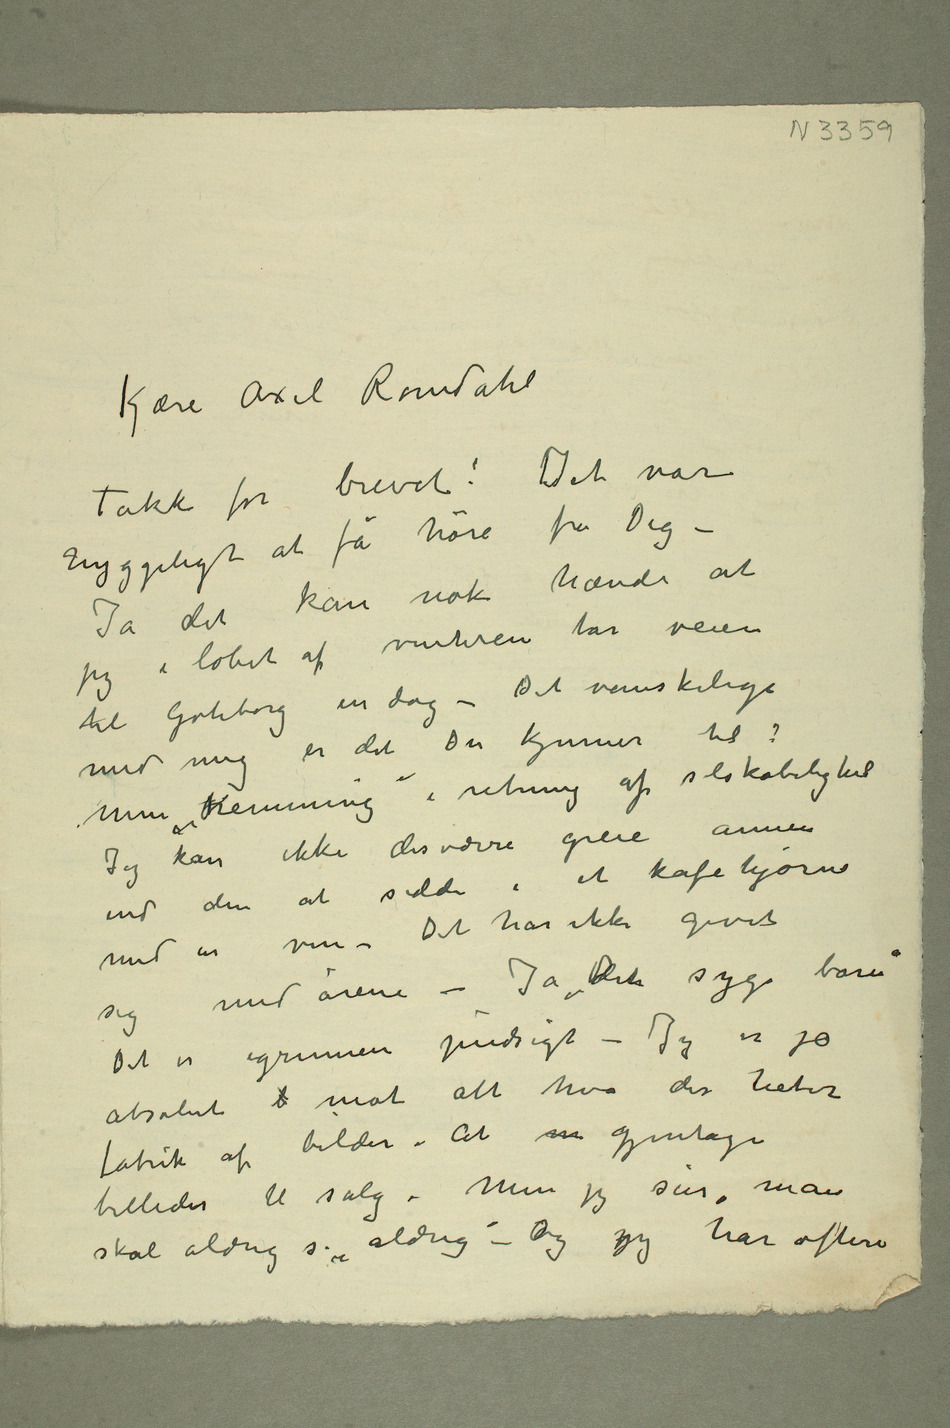 N 3359
Kjære Axel Romdahl
Takk for brevet! Det var
hyggeligt at få höre fra Dig –
Ja det kan nok hænde at
jeg i løbet af vinteren tar veien
til Göteborg en dag – Det vanskelige
med mig er det Du kjenner til:
min „hemming" i retning af selskabelighed
Jeg kan ikke desværre greie annen
end den at sidde i et kafehjørne
med en ven – Det har ikke givet
sig med årene – Ja, „Det syge barn"
Det er igrunnen pudsigt – Jeg er jo
absolut mot alt hva der heter
fabrik af bilder – At gjentage
billeder til salg – Men jeg sier, man
skal aldrig si „aldrig" – Og jeg har oftere